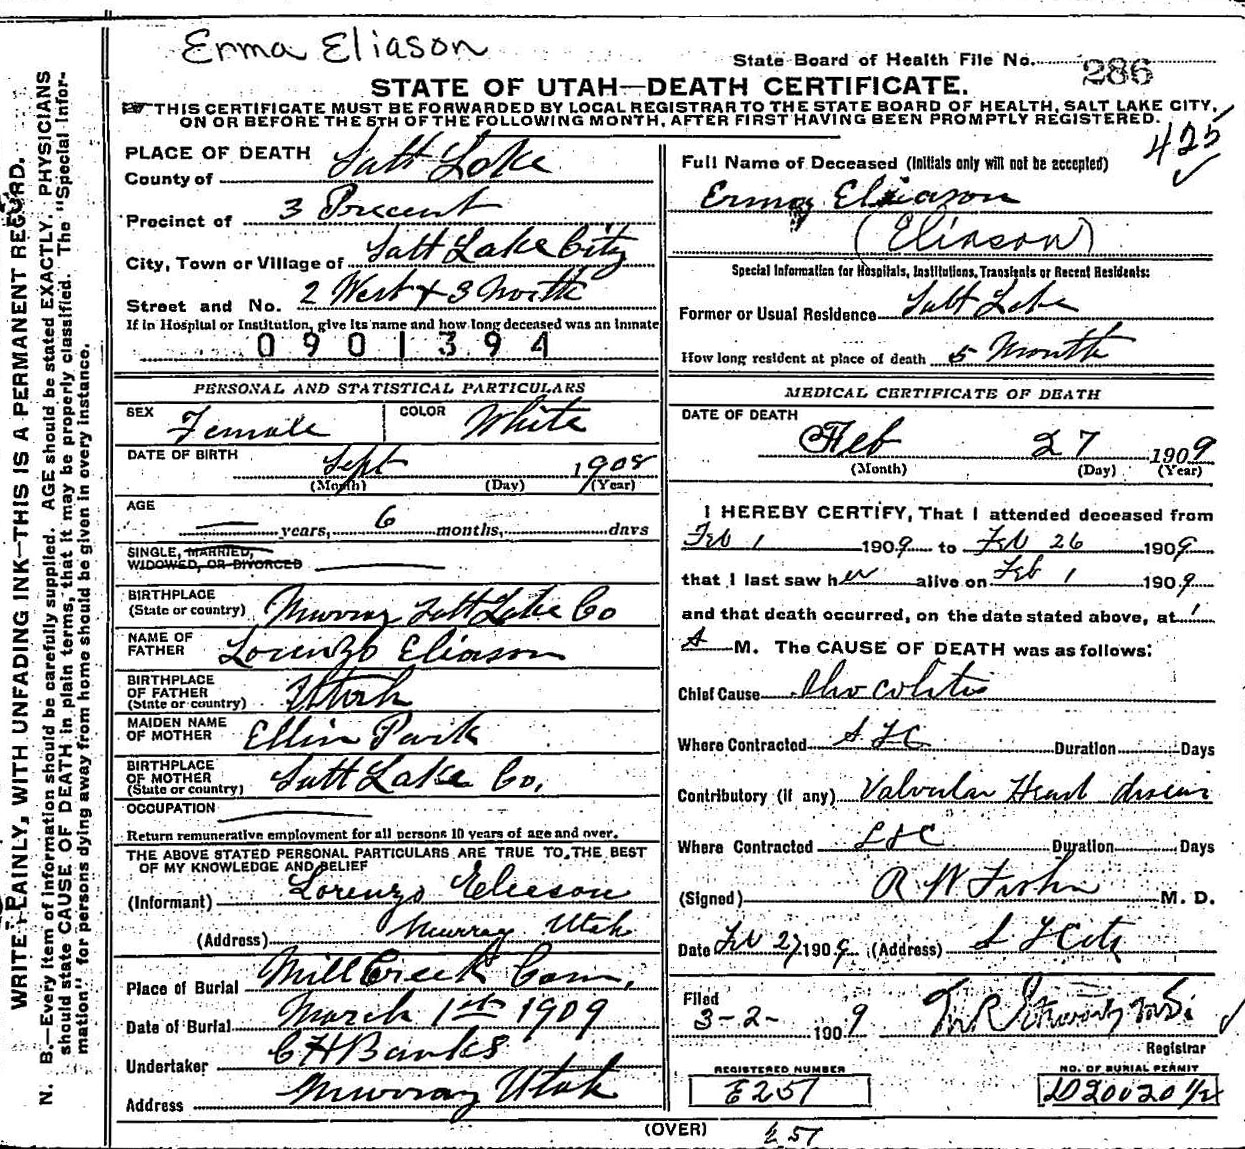 Erma Eliason
State Board of Health File No. 286
STATE OF UTAH—DEATH CERTIFICATE.
THIS CERTIFICATE MUST BE FORWARDED BY LOCAL REGISTRAR TO THE STATE BOARD OF HEALTH, SALT LAKE CITY,
ON OR BEFORE THE 5TH OF THE FOLLOWING MONTH, AFTER FIRST HAVING BEEN PROMPTLY REGISTERED.
425
PLACE OF DEATH
County of Salt Lake
Precinct of 3 Precent
City, Town or Village of Salt Lake City
Street and No. 2 West + 3 North
If in Hospital or Institution, give its name and how long deceased was an inmate
0901394
PERSONAL AND STATISTICAL PARTICULARS
SEX Female COLOR White
DATE OF BIRTH Sept 1908
(Month) (Day) (Year)
AGE
years, 6 months, days
SINGLE, MARRIED,
WIDOWED, OR DIVORCED
BIRTHPLACE
(State or country) Murray Salt Lake Co
NAME OF
FATHER Lorenzo Eliason
BIRTHPLACE
OF FATHER
(State or country) Utah
MAIDEN NAME
OF MOTHER Ellin Park
BIRTHPLACE
OF MOTHER
(State or country) Salt Lake Co.
OCCUPATION
Return remunerative employment for all persons 10 years of age and over.
THE ABOVE STATED PERSONAL PARTICULARS ARE TRUE TO THE BEST
OF MY KNOWLEDGE AND BELIEF
(Informant) Lorenzo Elieson
(Address) Murray Utah
Place of Burial Mill Creek Cem,
Date of Burial March 1st 1909
Undertaker C H Banks
Address Murray Utah
Full Name of Deceased (Initials only will not be accepted)
Erma Eliason
(Eliason)
Special Information for Hospitals, Institutions, Transients or Recent Residents:
Former or Usual Residence Salt Lake
How long resident at place of death 5 Month
MEDICAL CERTIFICATE OF DEATH
DATE OF DEATH
Feb 27 1909
(Month) (Day) (Year)
I HEREBY CERTIFY, That I attended deceased from
Feb 1 1909 to Feb 26 1909
that I last saw her alive on Feb 1 1909
and that death occurred, on the date stated above, at 1
A M. The CAUSE OF DEATH was as follows:
Chief Cause Ilio colitis
Where Contracted S L C Duration Days
Contributory (if any) Valvular Heart diseas
Where Contracted S L C Duration Days
(Signed) R W Fisher M. D.
Date Feb 27 1909 (Address) S L City
Filed
3-2- 1909
Registrar
REGISTERED NUMBER
E251
NO. OF BURIAL PERMIT
D20020 1/2
(OVER) E 51
WRITE PLAINLY, WITH UNFADING INK—THIS IS A PERMANENT RECORD.
N. B.—Every item of information should be carefully supplied. AGE should be stated EXACTLY. PHYSICIANS
should state CAUSE OF DEATH in plain terms, that it may be properly classified. The "Special Infor-
mation" for persons dying away from home should be given in every instance.